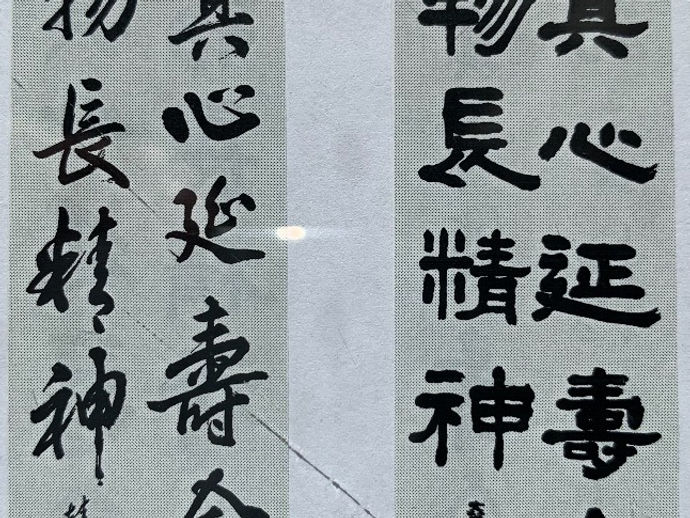 真心延壽
長精神
真心延壽
長精神